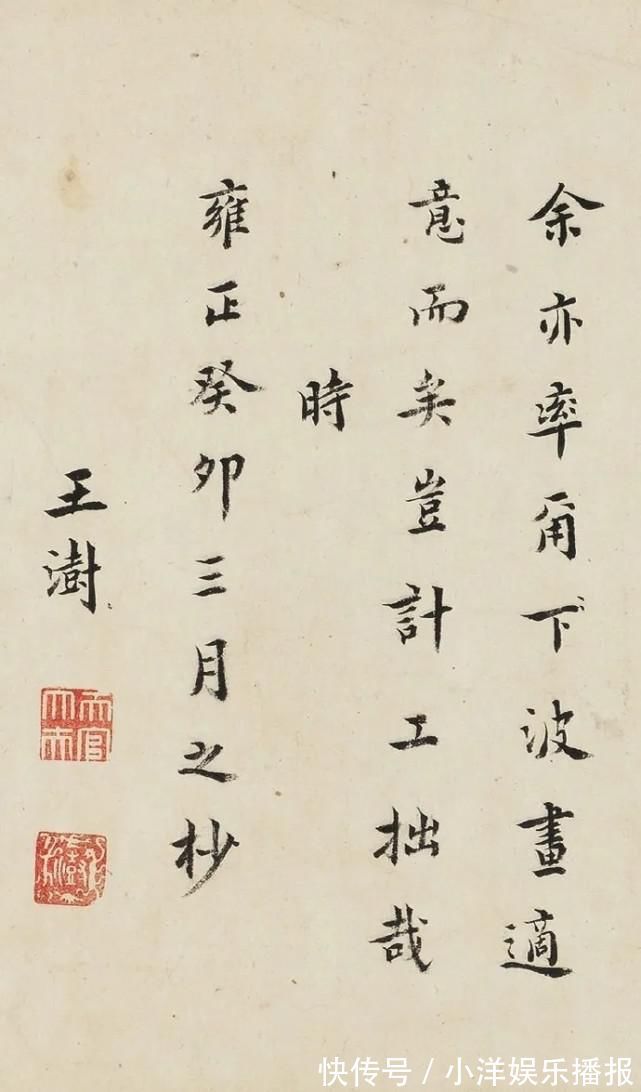 余亦率甭下波畫適
意而矣豈計工拙哉
時
雍正癸卯三月之杪
王澍
快传号/小洋娱乐播报